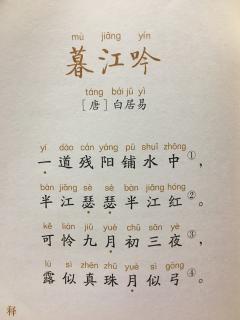 mù jiāng yín
暮江吟
táng bái jū yì
［唐］白居易
yí dào cán yáng pū shuǐ zhōng
一道残阳铺水中①，
bàn jiāng sè sè bàn jiāng hóng
半江瑟瑟半江红②。
kě lián jiǔ yuè chū sān yè
可怜九月初三夜③，
lù sì zhēn zhū yuè sì gōng
露似真珠月似弓④。
释